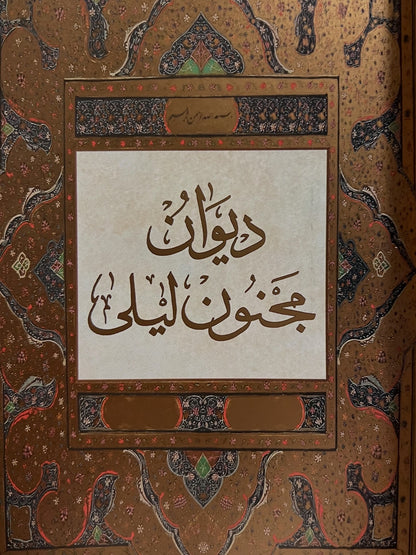 بسم الله الرحمن الرحيم
دِيوَانُ
مَجنُون لَيلى